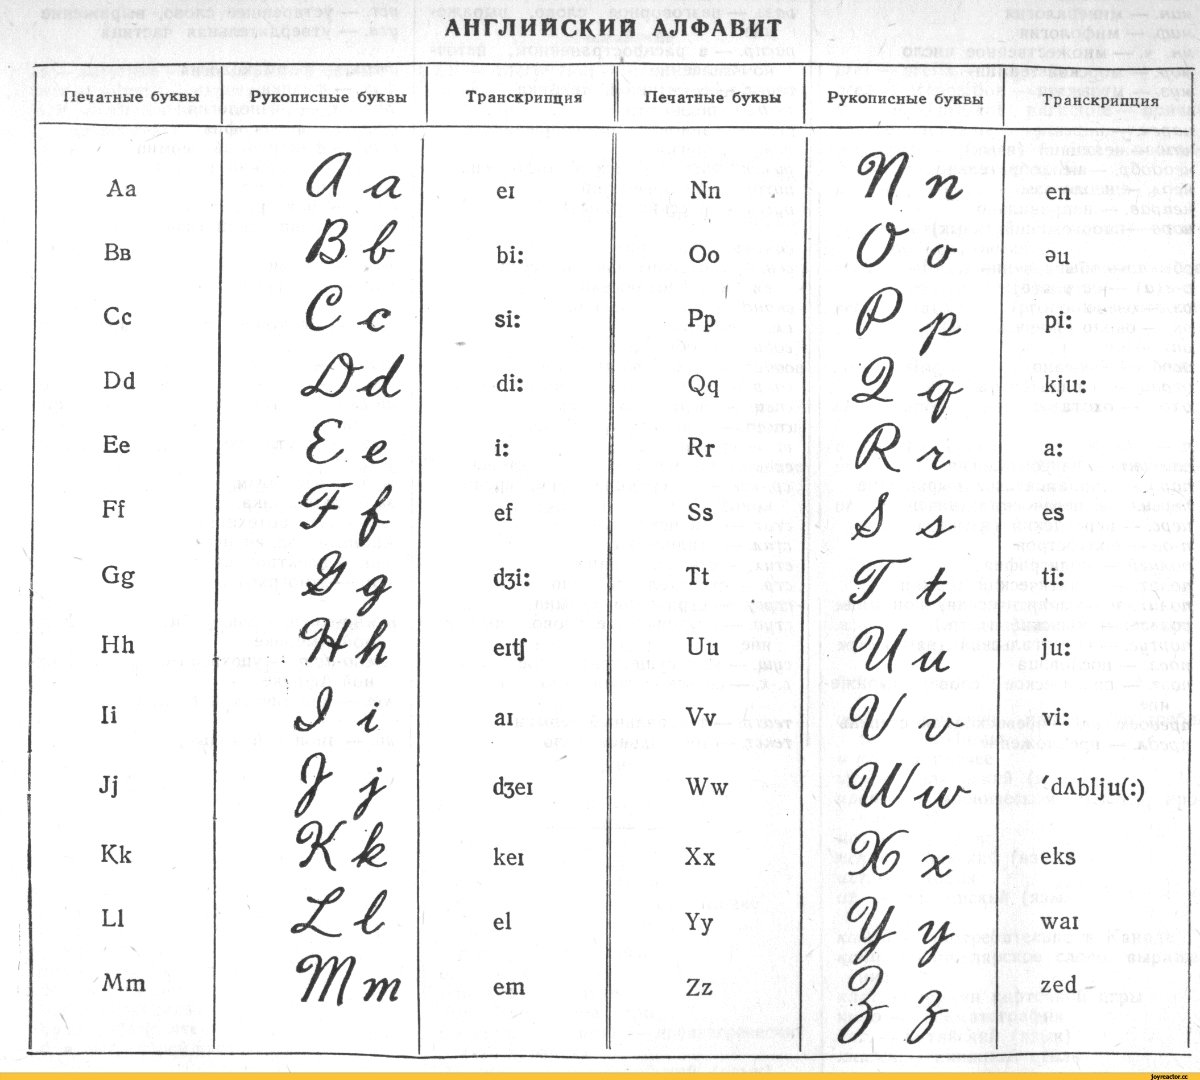 АНГЛИЙСКИЙ АЛФАВИТ
Печатные буквы Рукописные буквы Транскрипция Печатные буквы Рукописные буквы Транскрипция
Aa A a eɪ Nn N n en
Bв B b bi: Oo O o əu
Cc C c si: Pp P p pi:
Dd D d di: Qq Q q kju:
Ee E e i: Rr R r a:
Ff F f ef Ss S s es
Gg G g dʒi: Tt T t ti:
Hh H h eɪtʃ Uu U u ju:
Ii I i aɪ Vv V v vi:
Jj J j dʒeɪ Ww W w ′dʌblju(:)
Kk K k keɪ Xx X x eks
Ll L l el Yy Y y waɪ
Mm M m em Zz Z z zed
joyreactor.cc